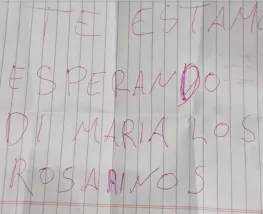 TE ESTAMO
ESPERANDO
DI MARIA LOS
ROSARINOS